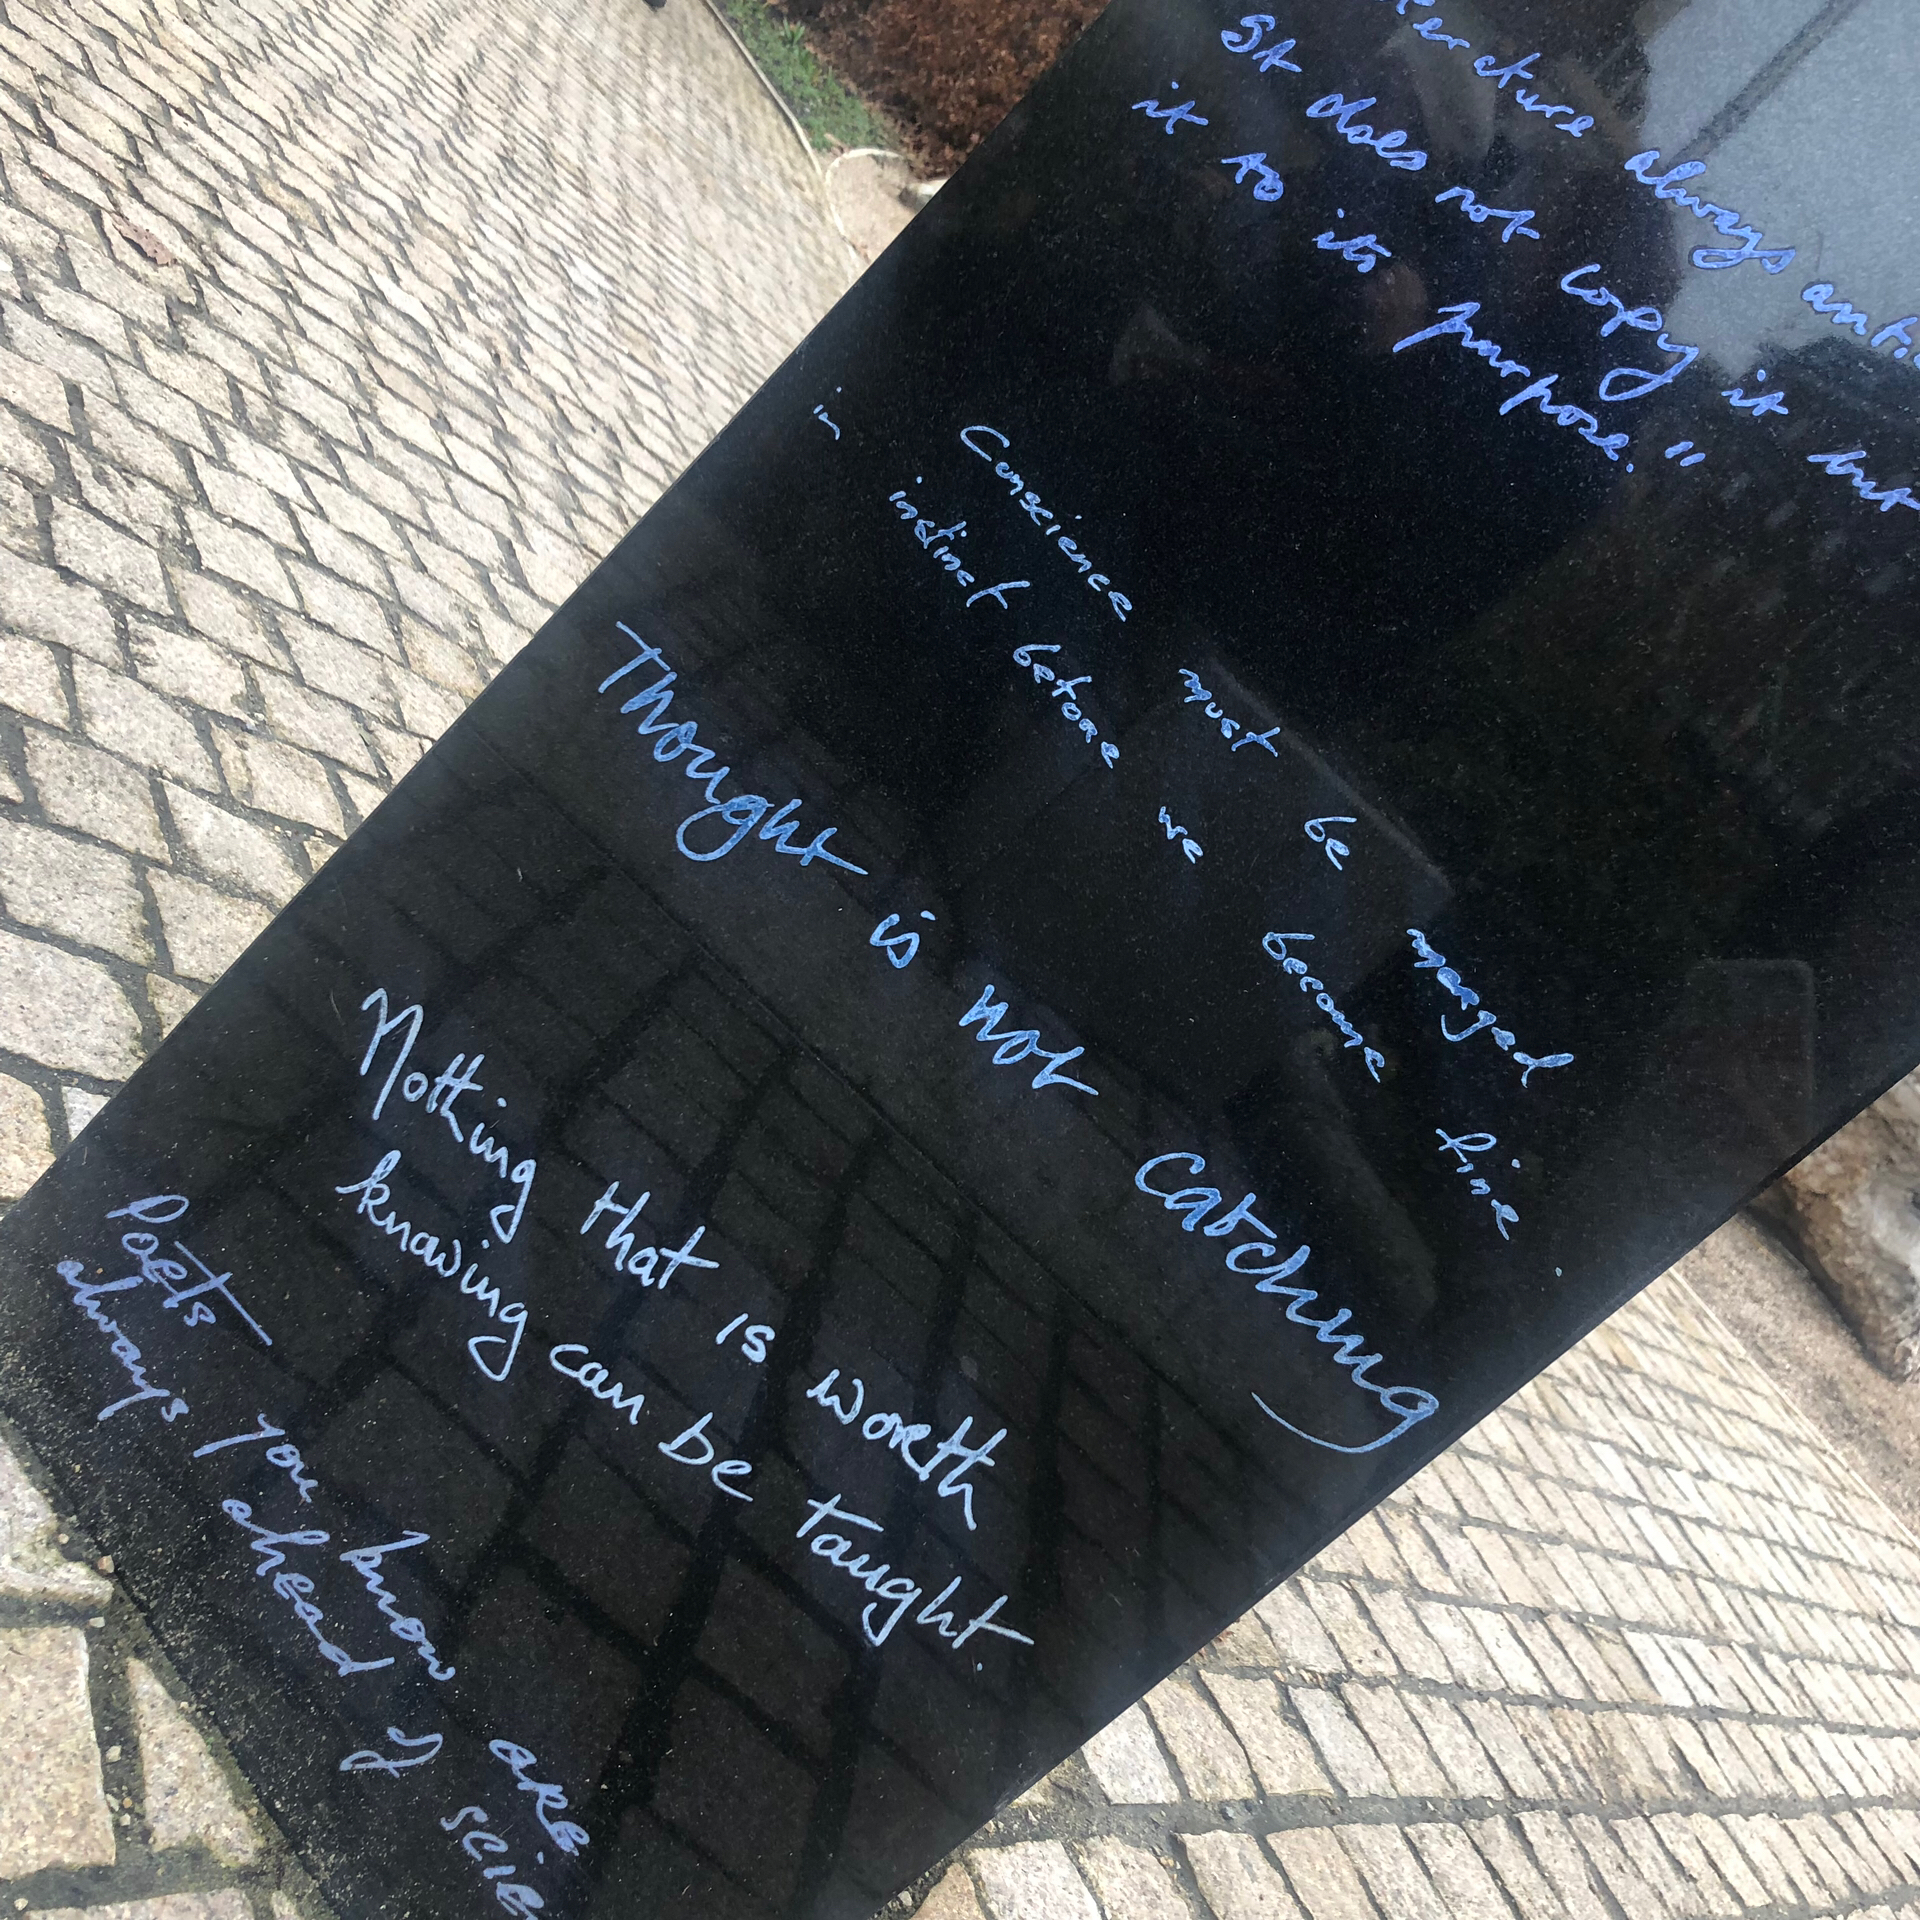 always
It does not copy it but
it to its purpose."
Conscience must be merged
in instinct before we become fine
Thought is not Catching
Nothing that is worth
knowing can be taught.
Poets you know are
always ahead of scie